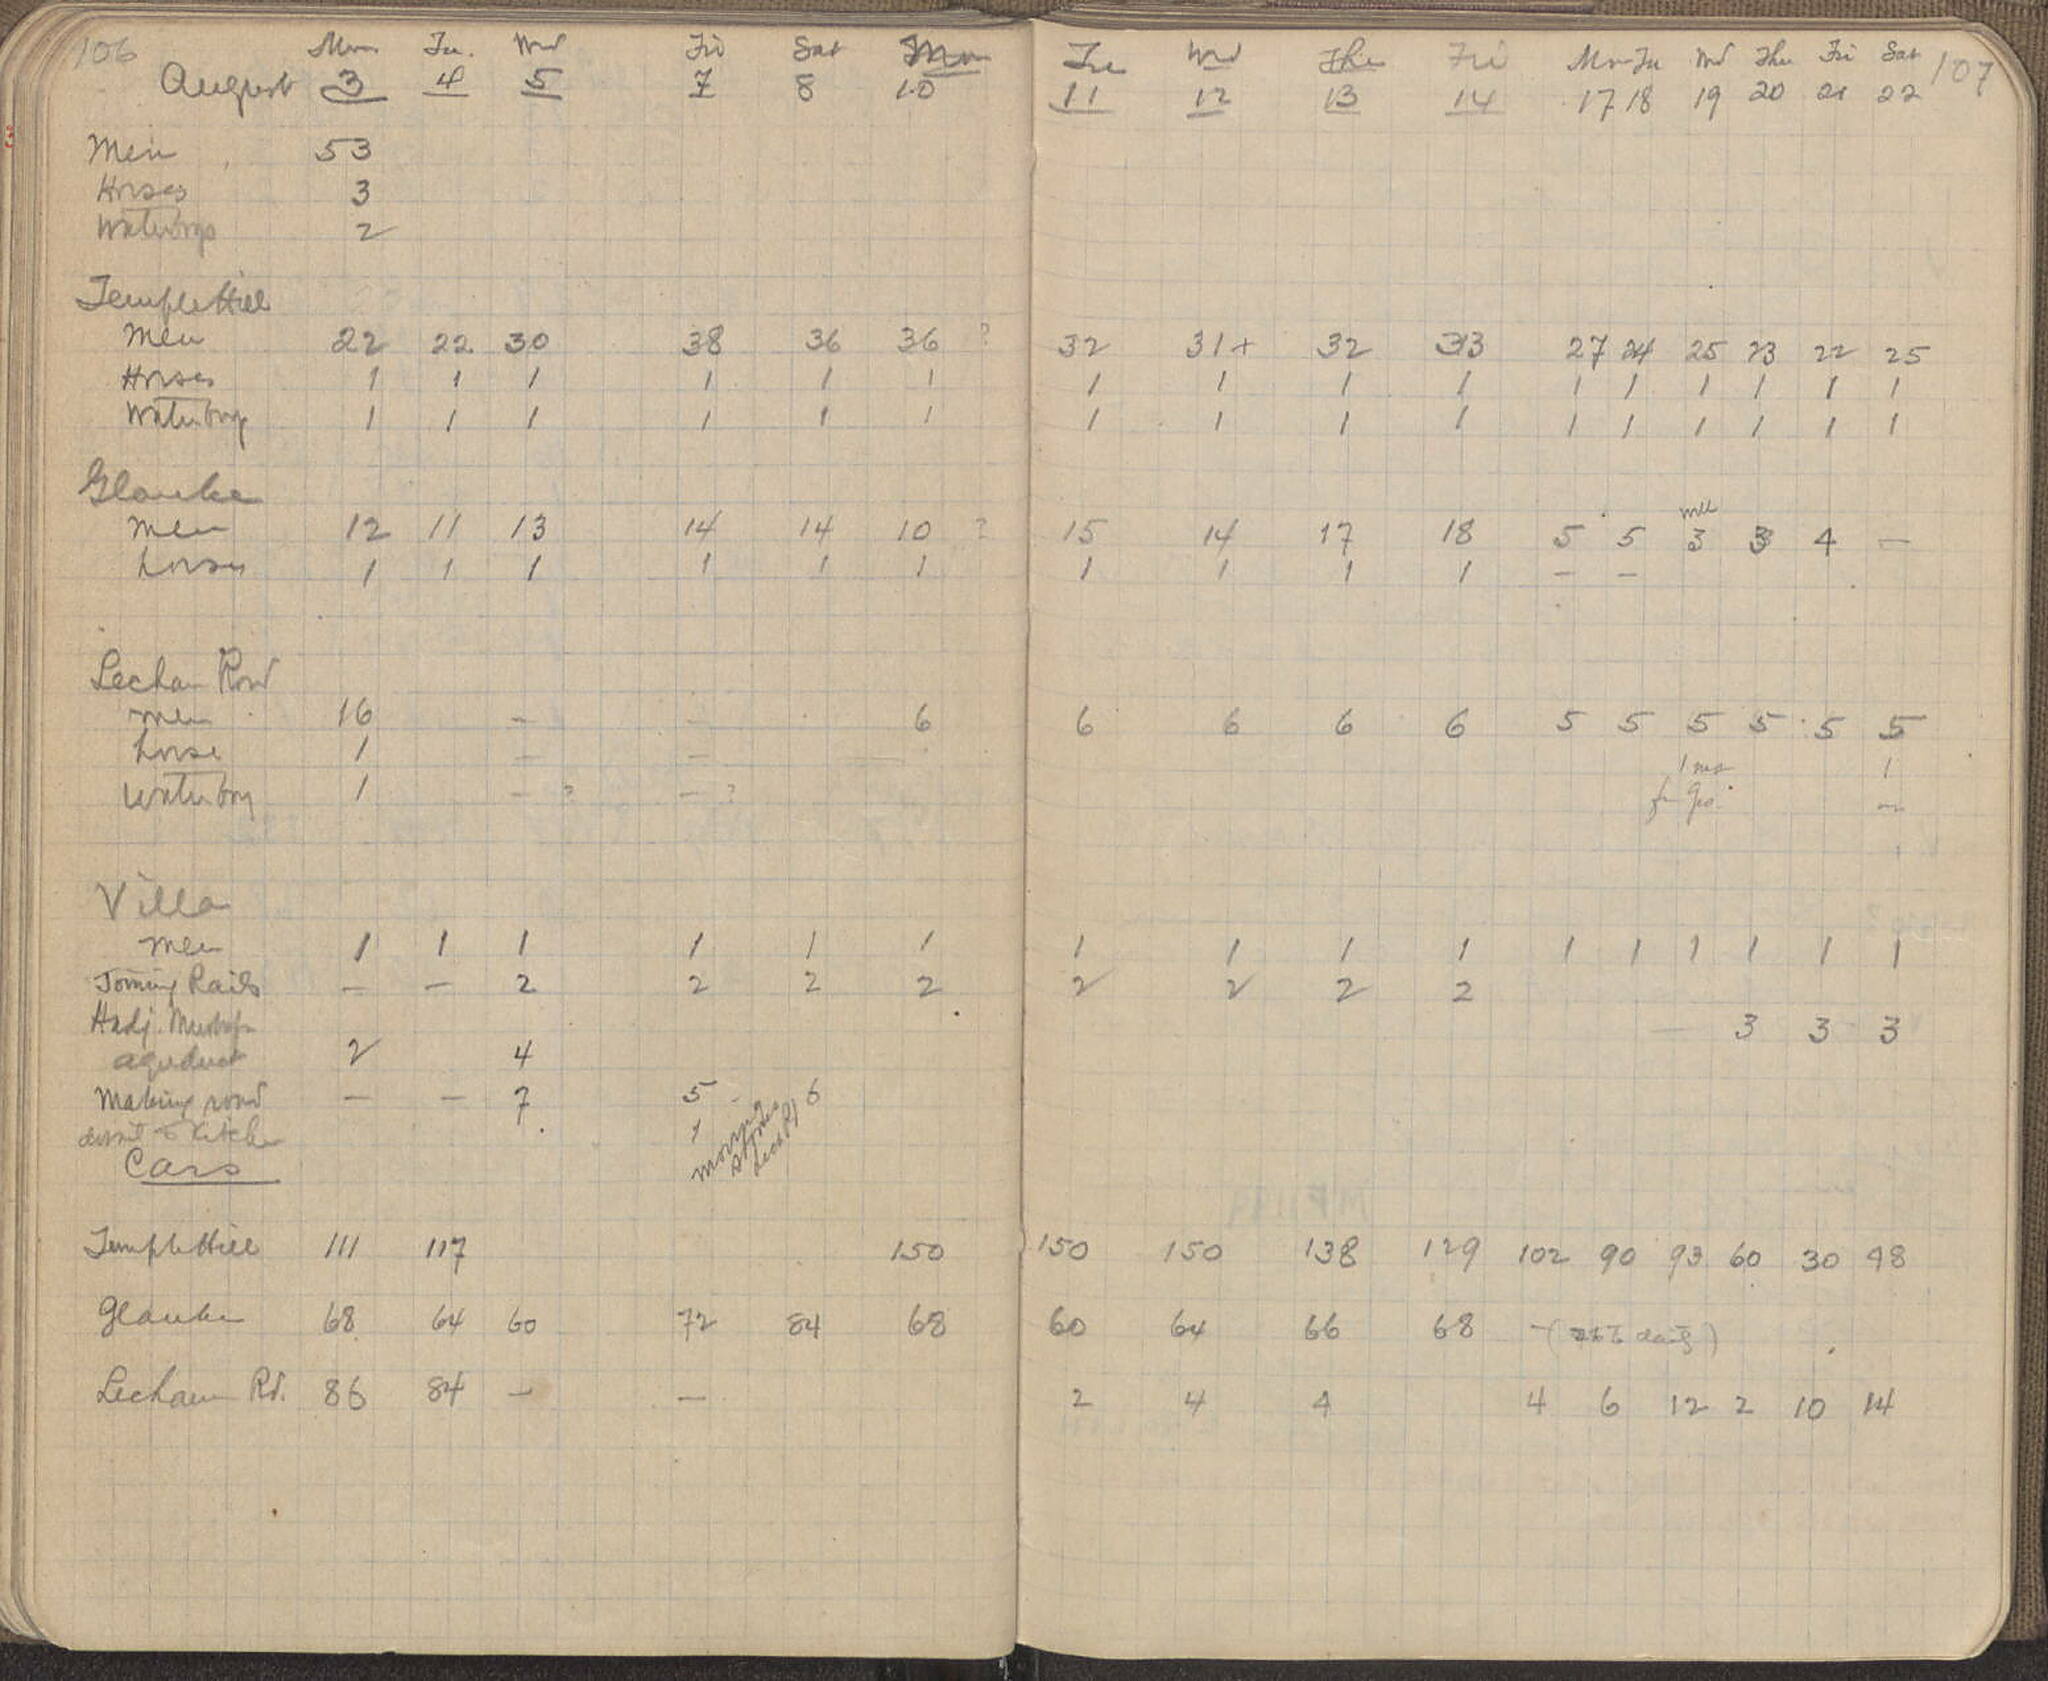 106 Mon Tu. Wed Fri Sat Mon
August 3 4 5 7 8 10
Men 53
Horses 3
Waterboys 2
Temple Hill
Men 22 22 30 38 36 36 ?
Horses 1 1 1 1 1 1
Waterboys 1 1 1 1 1 1
Glauke
Men 12 11 13 14 14 10 ?
horses 1 1 1 1 1 1
Lechaeum Road
men 16 — — 6
horse 1 — —
waterboy 1 — ? — ?
Villa
men 1 1 1 1 1 1
Joining Rails — — 2 2 2 2
Hadj. Mustapha
aqueduct 2 4
Making road — — 7 5 6
to Kitchen
moving stones Lech Rd
Cars
Temple Hill 111 117 150
Glauke 68 64 60 72 84 68
Lechaeum Rd. 86 84 — —
Tue Wed Thu Fri Mon Tu Wd Thu Fri Sat 107
11 12 13 14 17 18 19 20 21 22
32 31+ 32 33 27 24 25 23 22 25
1 1 1 1 1 1 1 1 1 1
1 1 1 1 1 1 1 1 1 1
15 14 17 18 5 5 3 3 4 —
1 1 1 1 — —
6 6 6 6 5 5 5 5 5 5
1 1
for Geo. —
1 1 1 1 1 1 1 1 1 1
2 2 2 2
— 3 3 3
150 150 138 129 102 90 93 60 30 48
60 64 66 68 — ( daily)
2 4 4 4 6 12 2 10 14